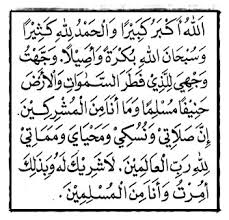 اَللهُ أَكْبَرُ كَبِيْرًا وَالْحَمْدُ لِلّٰهِ كَثِيْرًا
وَسُبْحَانَ اللهِ بُكْرَةً وَأَصِيْلًا. وَجَّهْتُ
وَجْهِيَ لِلَّذِيْ فَطَرَ السَّمٰوَاتِ وَالْأَرْضَ
حَنِيْفًا مُسْلِمًا وَمَا أَنَا مِنَ الْمُشْرِكِيْنَ
إِنَّ صَلَاتِيْ وَنُسُكِيْ وَمَحْيَايَ وَمَمَاتِيْ
لِلّٰهِ رَبِّ الْعَالَمِيْنَ. لَا شَرِيْكَ لَهُ وَبِذٰلِكَ
أُمِرْتُ وَأَنَا مِنَ الْمُسْلِمِيْنَ.